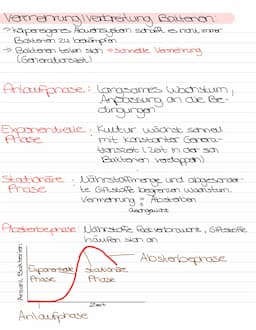 Vermehrung/Verbreitung Bakterien:
→ körpereigenes Abwehrsystem schafft es nicht immer
Bakterien zu bekämpfen
→ Bakterien teilen sich → schnelle Vermehrung
(Generationszeit)
Anlaufphase: Langsames Wachstum,
Anpassung an die Be-
dingungen
Exponentielle Phase: Kultur wächst schnell
mit konstanter Genera-
tionszeit (Zeit in der sich
Bakterien verdoppeln)
Stationäre Phase: Nährstoffmenge und abgesonder-
te Giftstoffe begrenzen Wachstum.
Vermehrung = Absterben
Gleichgewicht
Absterbephase: Nährstoffe fast verbraucht, Giftstoffe
häufen sich an
Absterbephase
Exponentielle Phase
stationäre Phase
Anzahl Bakterien
Zeit
Anlaufphase